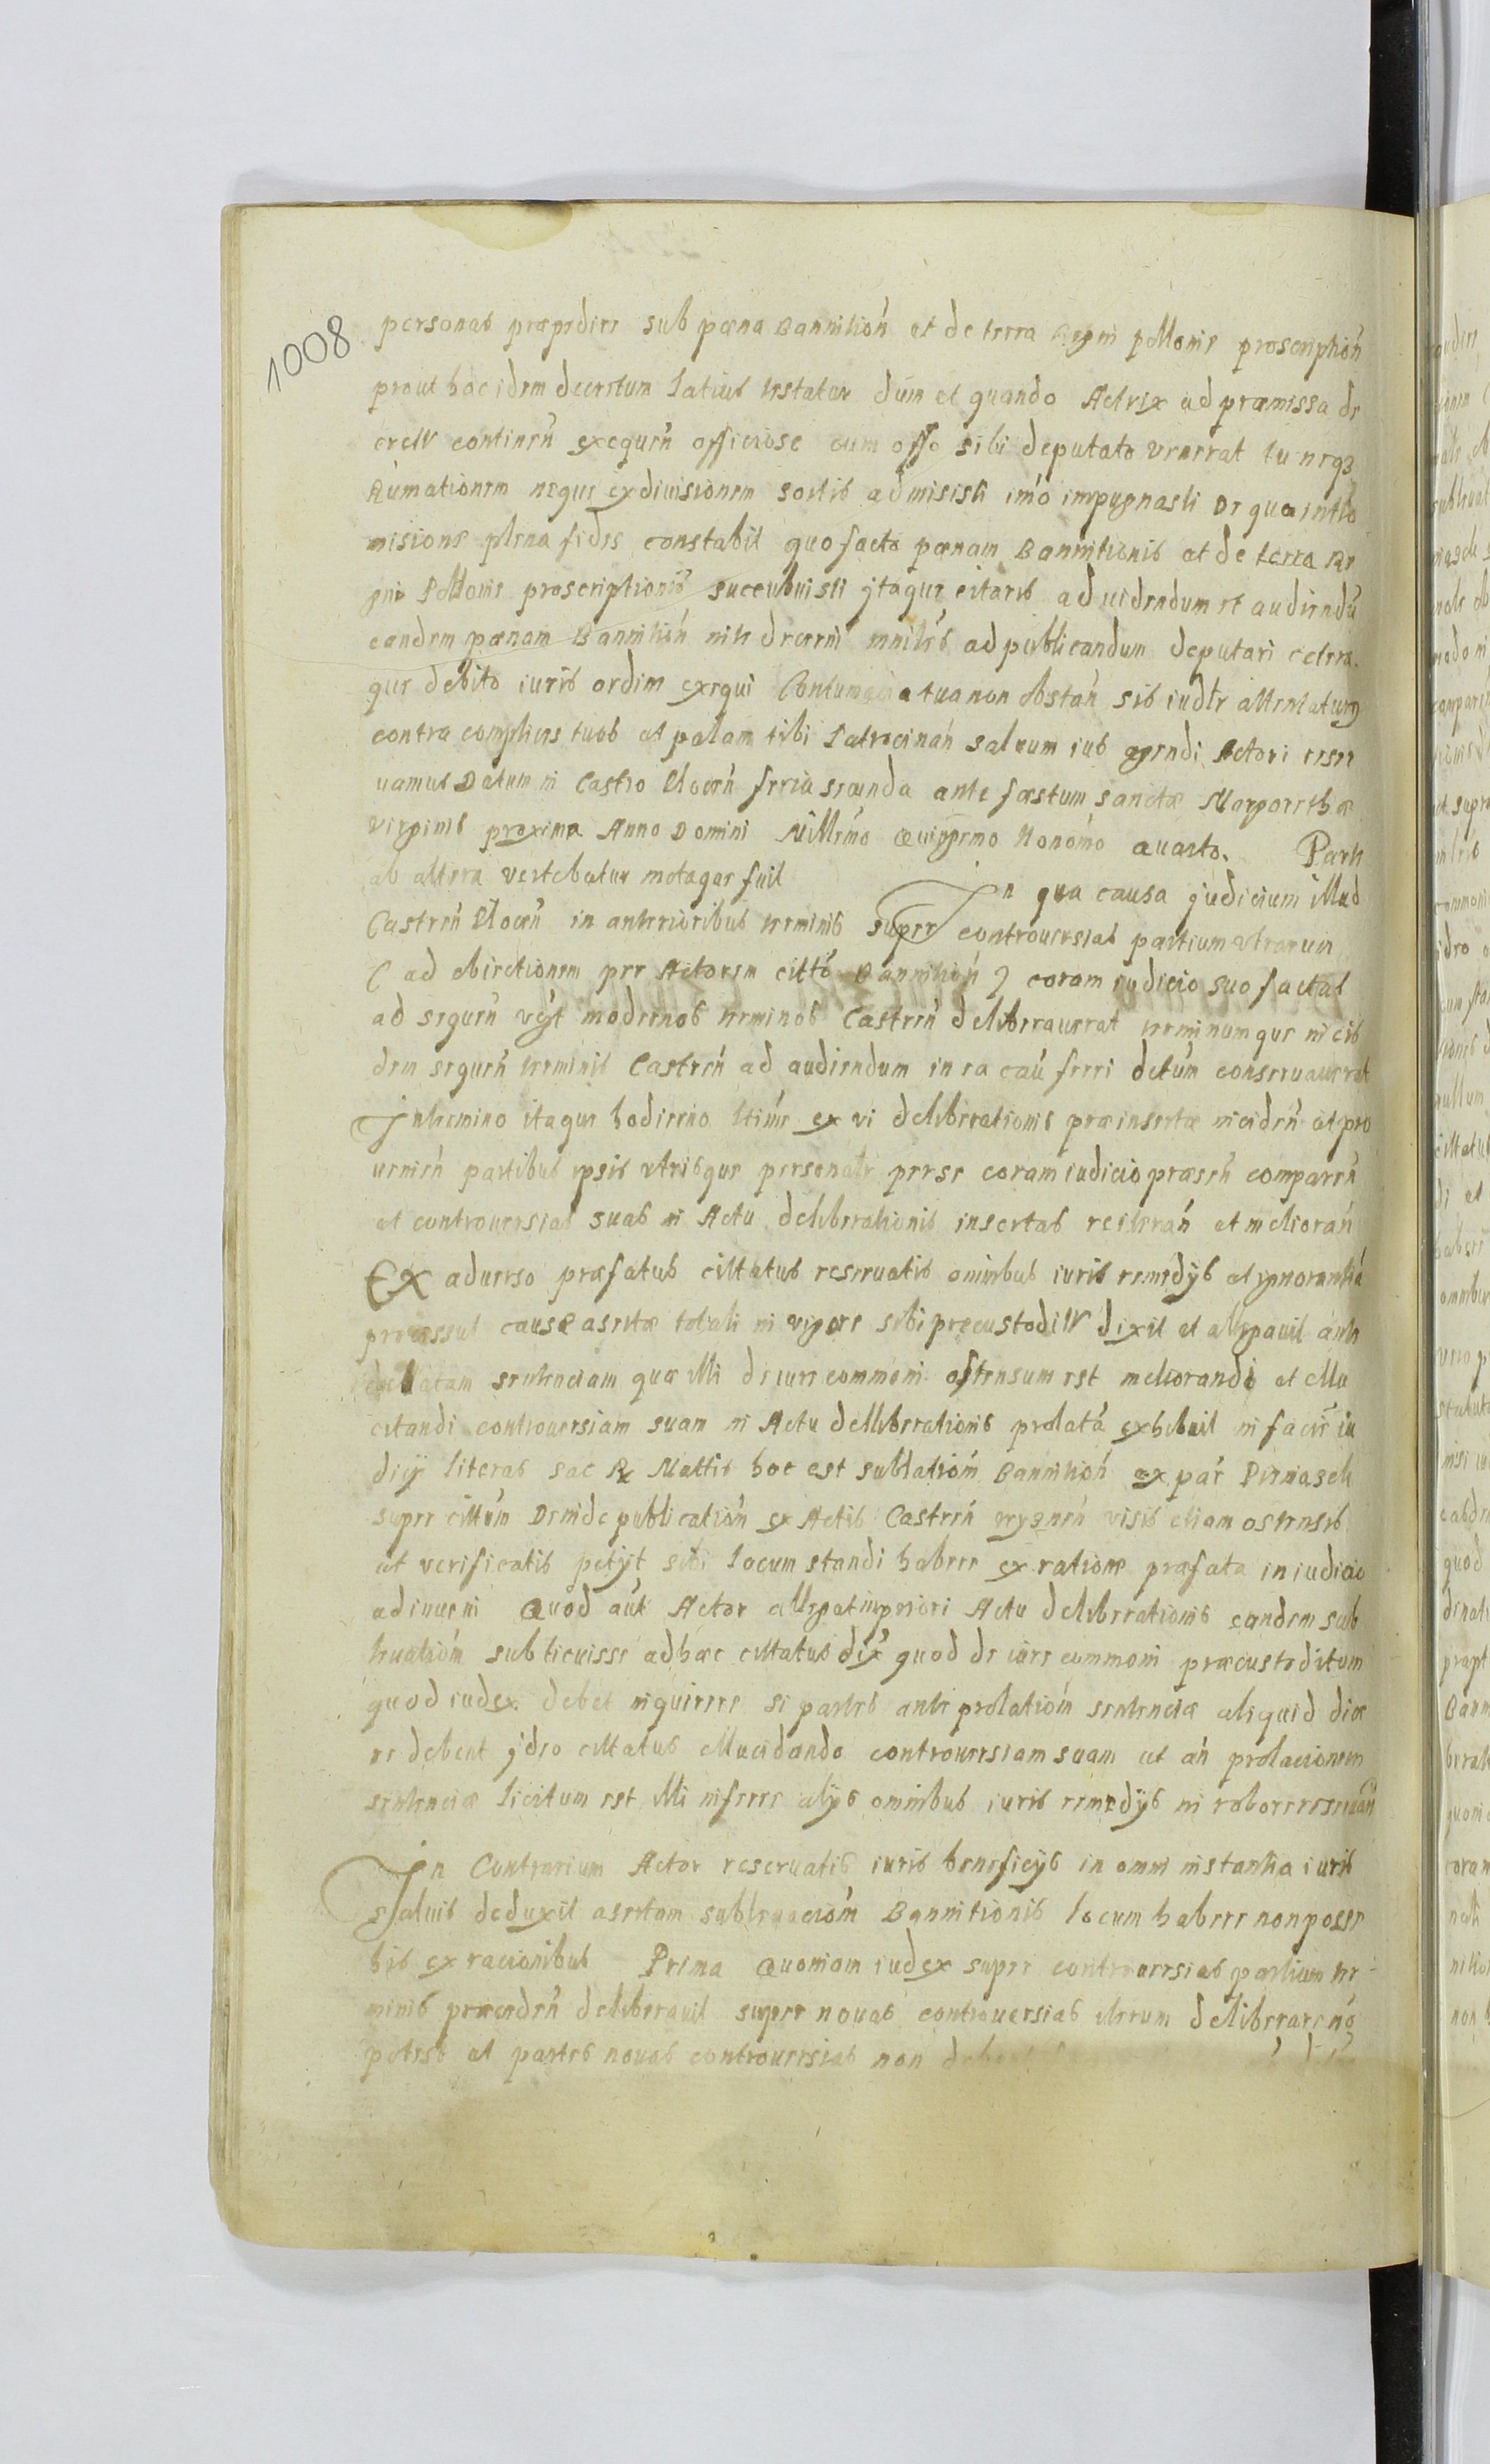 1008
personas præpedire sub pæna Bannition̄ et de terra Regni Pollonie proscription̄
prout hoc idem decretum latius testatur dum et quando Actrix ad præmissa de
cretu continen̄ exequen̄ officiose cum offo sibi deputato venerat tu neq3
Rumationem neque exdiuisionem sortis admisisti imo impugnasti De qua intro
misione plena fides constabit quo facto pænam Bannitionis et de terra Re
gni Pollonie proscriptionis succubuisti jtaque citaris ad uidendum et audiendū
eandem pænam Bannition̄ ad publicandum deputari cetera
que debito iuris ordine exequi Contumacia tua non obstan̄ sis iudtr attentaturg
contra complices tuos et palam tibi Patrocinan̄ saluum ius agendi Actori reser
uamus Datum in Castro feria secunda ante fæstum sanctæ Margarethæ
virginis proxima Anno Domini Millēmo Quingēmo Nonōmo Quarto. Parte
ab altera vertebatur motaque fuit In qua causa judicium illud
Castren̄ in anterioribus terminis super controuersias partium utrarum
( ad obiectionem per Actorem cittō Bannition̄ ) coram iudicio suo factas
ad sequen̄ modernos terminos Castren̄ deliberauerat terminumque in eis
dem sequen̄ terminis Castren̄ ad audiendum in ea caū ferri detūm conseruauerat
In termino itaque hodierno ltime ex vi deliberationis præinsertæ inciden̄ et pro
uenien̄ partibus ipsis utrisque personalr perse coram iudicio præsen̄ comparen̄
et controuersias suas in Actu deliberationis insertas reiteran̄ et melioran̄
Ex aduerso præfatus cittatus reseruatis omnibus iuris remedÿs et ignorantiā
processus causæ asertæ totali in vigore sibi præcustoditu dixit et allegauit ante
sentenciam quæ illi de iure commoni ostensum est meliorandi et ellu
citandi controuersiam suam in Actu delliberationis prolatā exhibuit in facie iu
dicÿ literas sac Rx Mattis hoc est sublation̄ Bannition̄ ex par̄
super cittūm Deinde publication̄ ex Actis Castren̄ visis etiam ostensis
et verificatis petÿt sibi locum standi habere ex ratione præfata in iudicio
adinueni Quod aūt Actor allegat in priori Actu deliberationis eandem sub
leuation̄ subticuisse ad hæc cittatus dix̄ quod de iure commoni præcustoditum
quod iudex debet inquirere si partes ante prolation̄ sentenciæ aliquid dice
re debent jdeo cittatus ellucidando controuersiam suam et an̄ prolacionem
sentenciæ licitum est illi inferre alÿs omnibus iuris remedÿs in robore reseruan̄
In Contrarium Actor reseruatis iuris beneficÿs in omni instantia iuris
saluis deduxit asertam subleuacion̄ Bannitionis locum habere non posse
his ex racionibus Prima Quoniam iudex super controuersias partium ter
minis præceden̄ deliberauit super nouas controuersias iterum deliberare nō
potest et partes nouas controuersias non